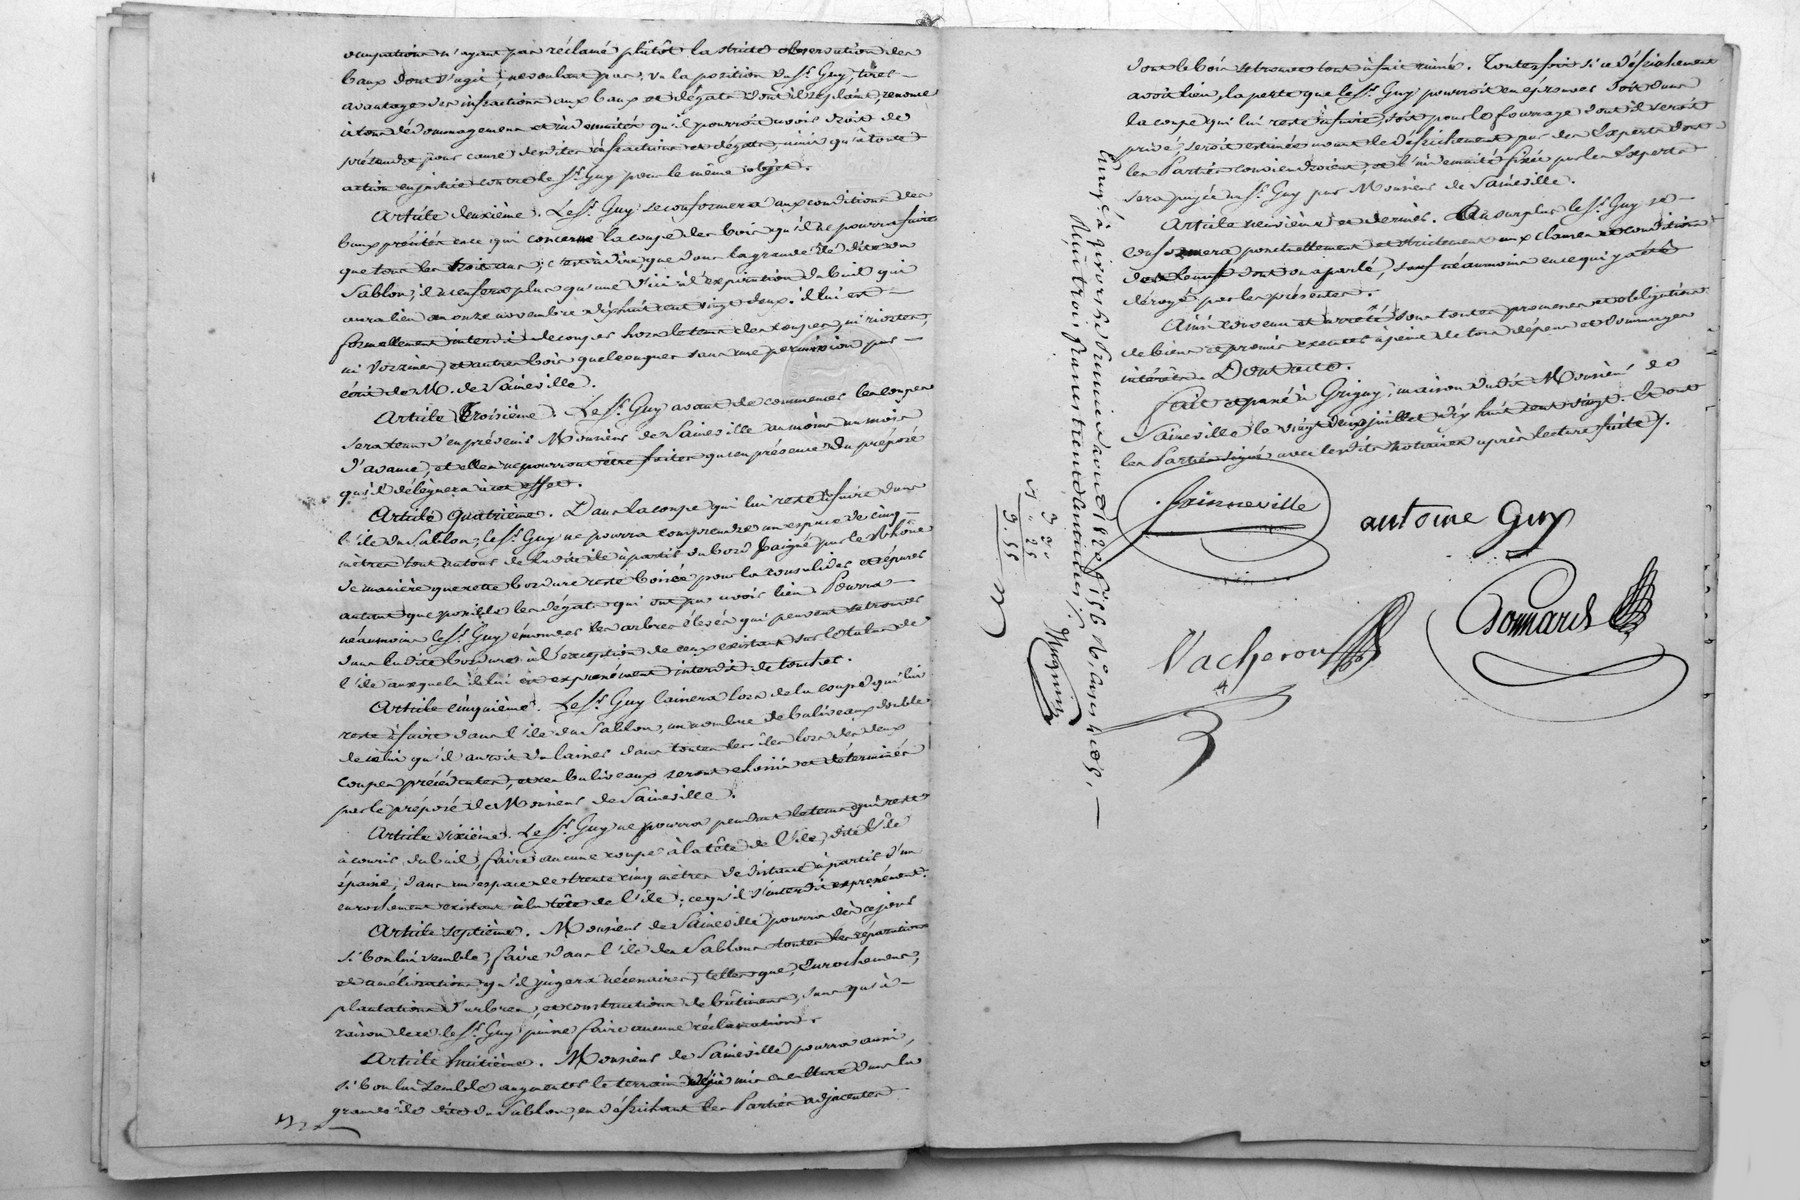 occupations n'ayant pas réclamé plutôt la stricte observation des
baux dont s'agit, ne voulant pas, vu la position du Sr. Guy, tirer
avantage des infractions aux baux et dégats dont il se plaint, renonce
à tous dédommagemens et indemnités qu'il pourroit avoir droit de
prétendre pour cause desdites infractions et dégats, ainsi qu'à toute
action en justice contre le Sr. Guy pour le même objet.
Article deuxième. Le Sr. Guy se conformera aux conditions des
baux précités en ce qui concerne la coupe des bois qu'il ne pourra faire
que tous les trois ans; c'est-à-dire, que dans la grande île dite du
Sablon, il n'en fera plus qu'une d'ici à l'expiration du bail qui
aura lieu au onze novembre dix huit cent vingt deux. il lui est
formellement interdit de couper hors le tems des coupes, ni osiers,
ni vorzines, et autres bois quelconques sans une permission par
écrit de M. de Saineville.
Article Troisième. Le Sr. Guy avant de commencer les coupes
sera tenu d'en prévenir Monsieur de Saineville au moins un mois
d'avance, et elles ne pourront être faites qu'en présence du préposé
qu'il déléguera à cet effet.
Article quatrième. Dans la coupe qui lui reste à faire dans
l'île du Sablon, le Sr. Guy ne pourra comprendre un espace de cinq
mètres tout autour de ladite île à partir du bord baigné par le Rhône
de manière que cette bordure reste boisée pour la consolider et réparer
autant que possible les dégats qui ont pu avoir lieu. Pourra
néaumoins le Sr. Guy émonder les arbres élevés qui peuvent se trouver
dans ladite bordure à l'exception de ceux existant sur le talus de
l'île auxquels il lui est expressément interdit de toucher.
Article cinquième. Le Sr. Guy laissera lors de la coupe qui lui
reste à faire dans l'île du Sablon, un nombre de baliveaux double
de celui qu'il auroit du laisser dans toutes les îles lors des deux
coupes précédentes, et ces baliveaux seront choisis et déterminés
par le préposé de Monsieur de Saineville.
Article sixième. Le Sr. Guy ne pourra pendant le tems qui reste
à courir du bail, faire aucune coupe à la tête de l'île, dite l'île
épaisse, dans un espace de trente cinq mètres de distance à partir d'un
enrochement existant à la tête de l'île; ce qu'il s'interdit expressément.
Article septième. Monsieur de Saineville pourra dès ce jour
si bon lui semble, faire dans l'île des Sablons toutes les réparations
et améliorations qu'il jugera nécessaires, telles que, Enrochemens,
plantations d'arbres, et constructions de bâtimens, sans qu'à
raison de ce le Sr. Guy puisse faire aucune réclamation.
Article huitième. Monsieur de Saineville pourra aussi,
si bon lui semble augmenter le terrain déjà mis en culture dans la
grande île dite du Sablon, en défrichant les Parties adjacentes
dont le bois se trouve tout à fait ruiné. Toutesfois si ce défrichement
avoit lieu, la perte que le Sr. Guy pourroit en éprouver soit dans
la coupe qui lui reste à faire, soit pour le fourrage dont il seroit
privé, seroit estimée avant le défrichement par des Experts dont
les Parties conviendroient, et l'indemnité fixée par les Experts
sera payée au Sr. Guy par Monsieur de Saineville.
Article neuvième et dernier. Au surplus le Sr. Guy se
conformera ponctuellement et strictement aux clauses et conditions
des baux dont on a parlé, sauf néaumoins en ce qui y a été
dérogé par les présentes.
Ainsi convenu et arrêté sous toutes promesses et obligations
de biens et promis exécuter à peine de tous dépens et dommages
intérêts. Dont acte.
fait et passé à Grigny, maison dudit Monsieur de
Saineville le vingt deux juillet dix huit cent vingt. Et ont
les Parties signé avec lesdits Notaires après lecture faite.
Sainneville
antoine Guy
Vacheron
Bonnard
Enregé. à Givors le premier aout 1820 fo. 156 Ro.
Reçu trois francs trente centimes
3 30
3.55